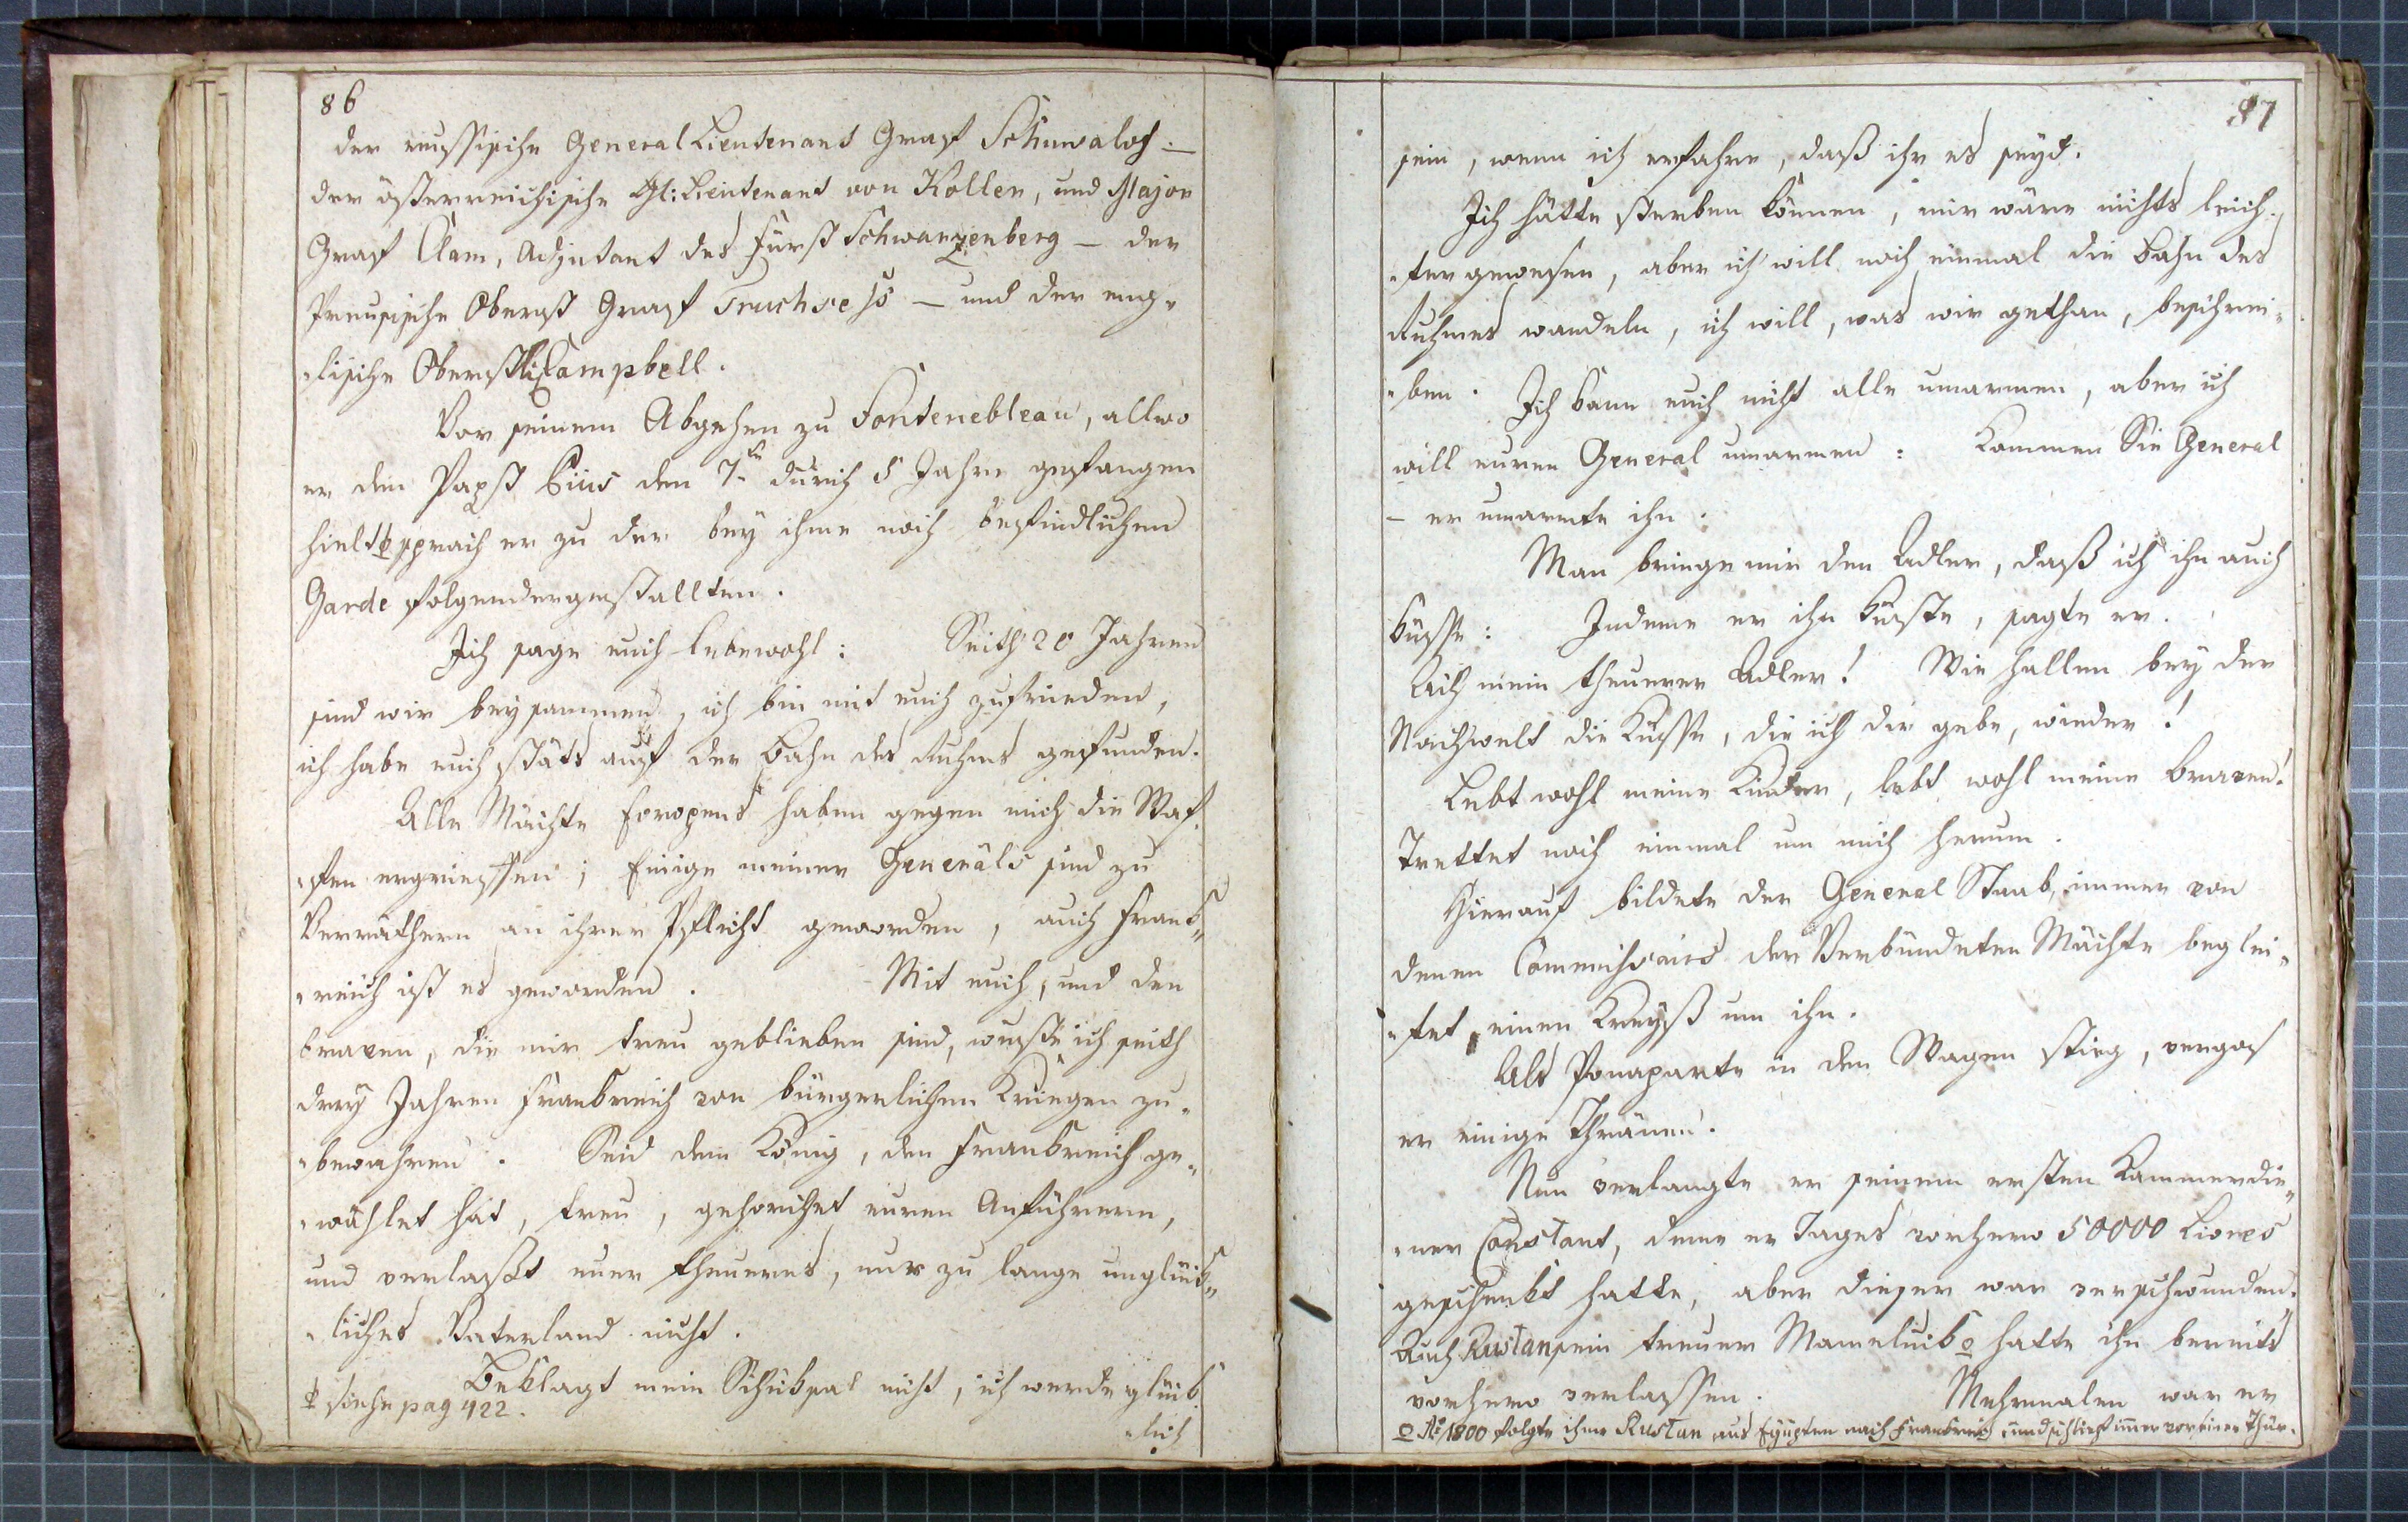 86
der russische General Lieutenant Graf Schuwalof. —
der österreichische Gl: Lieutenant von Koller, und Major
Graf Clam, Adjutant des Fürst Schwarzenberg — der
Preusische Oberst Graf Truchsess — und der eng„
„lische Oberstl: Campbell.
Vor seinem Abgehen zu Fontenebleau, allwo
er den Papst Pius den 7n durch 5 Jahre gefangen
hielt sprach er zu der bey ihme noch befindlichen
Garde folgendergestallten.
Ich sage euch lebewohl: Seith 20 Jahren
sind wir beysammen, ich bin mit euch zufrieden,
ich habe euch stäts auf der Bahn des Ruhms gefunden.
Alle Mächte Europens haben gegen mich die Waf„
„fen ergrieffen; Einige meiner Generäls sind zu
Verräthern an ihrer Pflicht geworden, auch Frank„
„reich ist es geworden. Mit euch, und den
braven, die mir treu geblieben sind, wußte ich seith
drey Jahren Frankreich von bürgerlichen Kriegen zu„
„bewahren. Seid dem König, den Frankreich ge„
„wählet hat, treu, gehorchet euren Anführern,
und verlaßt euer theueres, nur zu lange unglück„
„liches Vaterland nicht.
Beklagt mein Schicksal nicht, ich werde glück„
siehe pag 422.
„lich
87
sein, wenn ich erfahre, daß ihr es seyd.
Ich hätte sterben können, mir wäre nichts leich„
„ter gewesen, aber ich will noch einmal die Bahn des
Ruhmes wandeln, ich will, was wir gethan, beschrei„
„ben. Ich kann euch nicht alle umarmen, aber ich
will euren General umarmen: Kommen Sie General
— er umarmte ihn.
Man bringe mir den Adler, daß ich ihn auch
küsse: Indeme er ihn küste, sagte er.
Ach mein theurer Adler! Wie hallen bey der
Nachwelt die Küsse, die ich dir gebe, wieder!
Lebt wohl meine Kinder, lebt wohl meine braven!
Trettet noch einmal um mich herum.
Hierauf bildete der General Staab, immer von
denen Commissairs der Verbündeten Mächte beglei„
„tet, einen Kreyß um ihn.
Als Ponaparte in den Wagen stieg, vergos
er einige Thränen.
Nun verlangte er seinem ersten Kammerdie„
„ner Constant, deme er Tages vorhero 50000 Livres
geschenkt hatte, aber dieser war verschwunden.
Auch Rustan sein treuer Mameluck o hatte ihn bereits
vorhero verlassen. Mehrmalen war er
o Ao 1800 folgte ihme Rustan aus Egÿpten nach Frankreich und schlief imer vor seiner Thür.